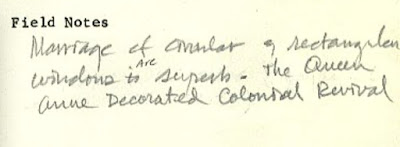 Field Notes
Marriage of circular & rectangular
windows is Are superb - The Queen
Anne Decorated Colonial Revival